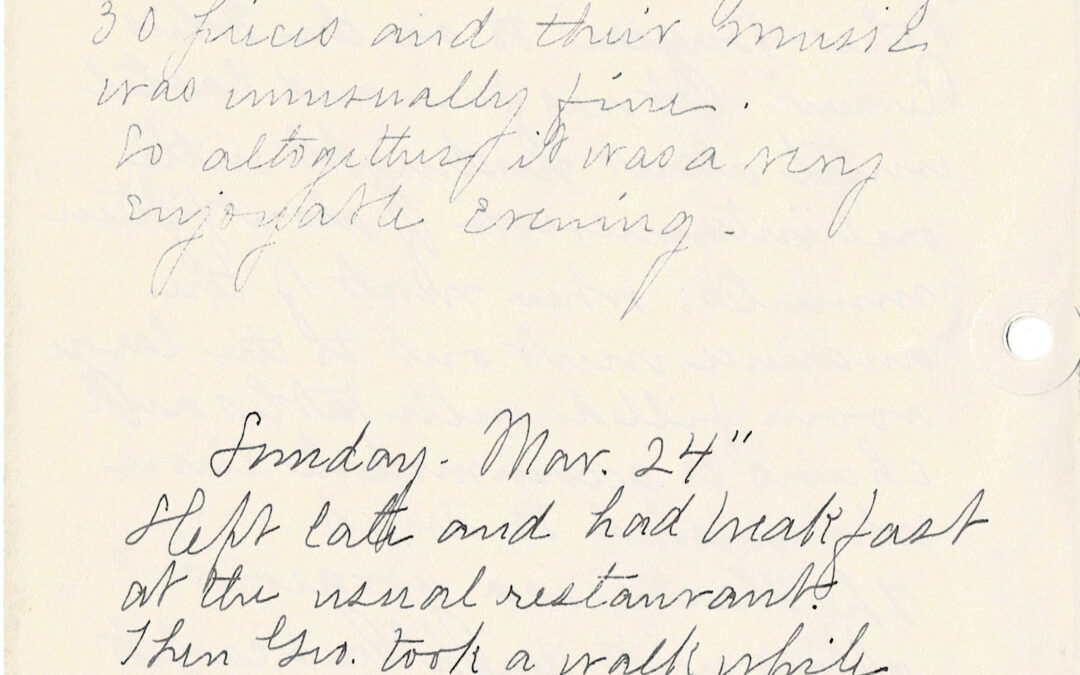 30 pieces and their music
was unusually fine.
So altogether it was a very
enjoyable evening -
Sunday - Mar. 24"
Slept late and had breakfast
at the usual restaurant.
Then Geo. took a walk while